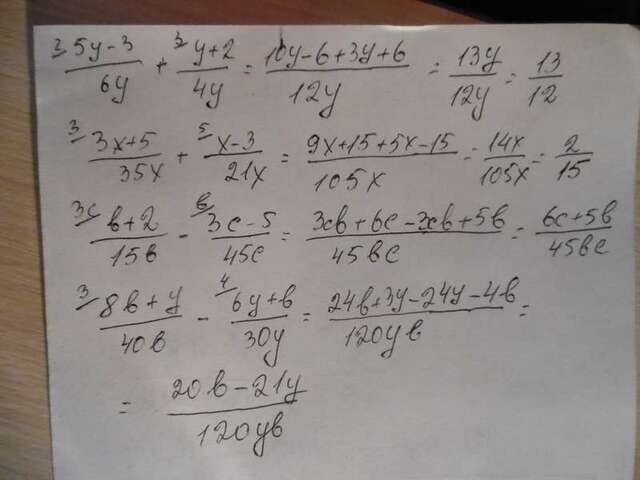 ³⁄ (5y-3)/(6y) + ³⁄ (y+2)/(4y) = (10y-6+3y+6)/(12y) = 13y/12y = 13/12
³⁄ (3x+5)/(35x) + ⁵⁄ (x-3)/(21x) = (9x+15+5x-15)/(105x) = 14x/105x = 2/15
³ᶜ⁄ (b+2)/(15b) - ᵇ⁄ (3c-5)/(45c) = (3cb+6c-3cb+5b)/(45bc) = (6c+5b)/(45bc)
³⁄ (8b+y)/(40b) - ⁴⁄ (6y+b)/(30y) = (24b+3y-24y-4b)/(120yb) =
= (20b-21y)/(120yb)